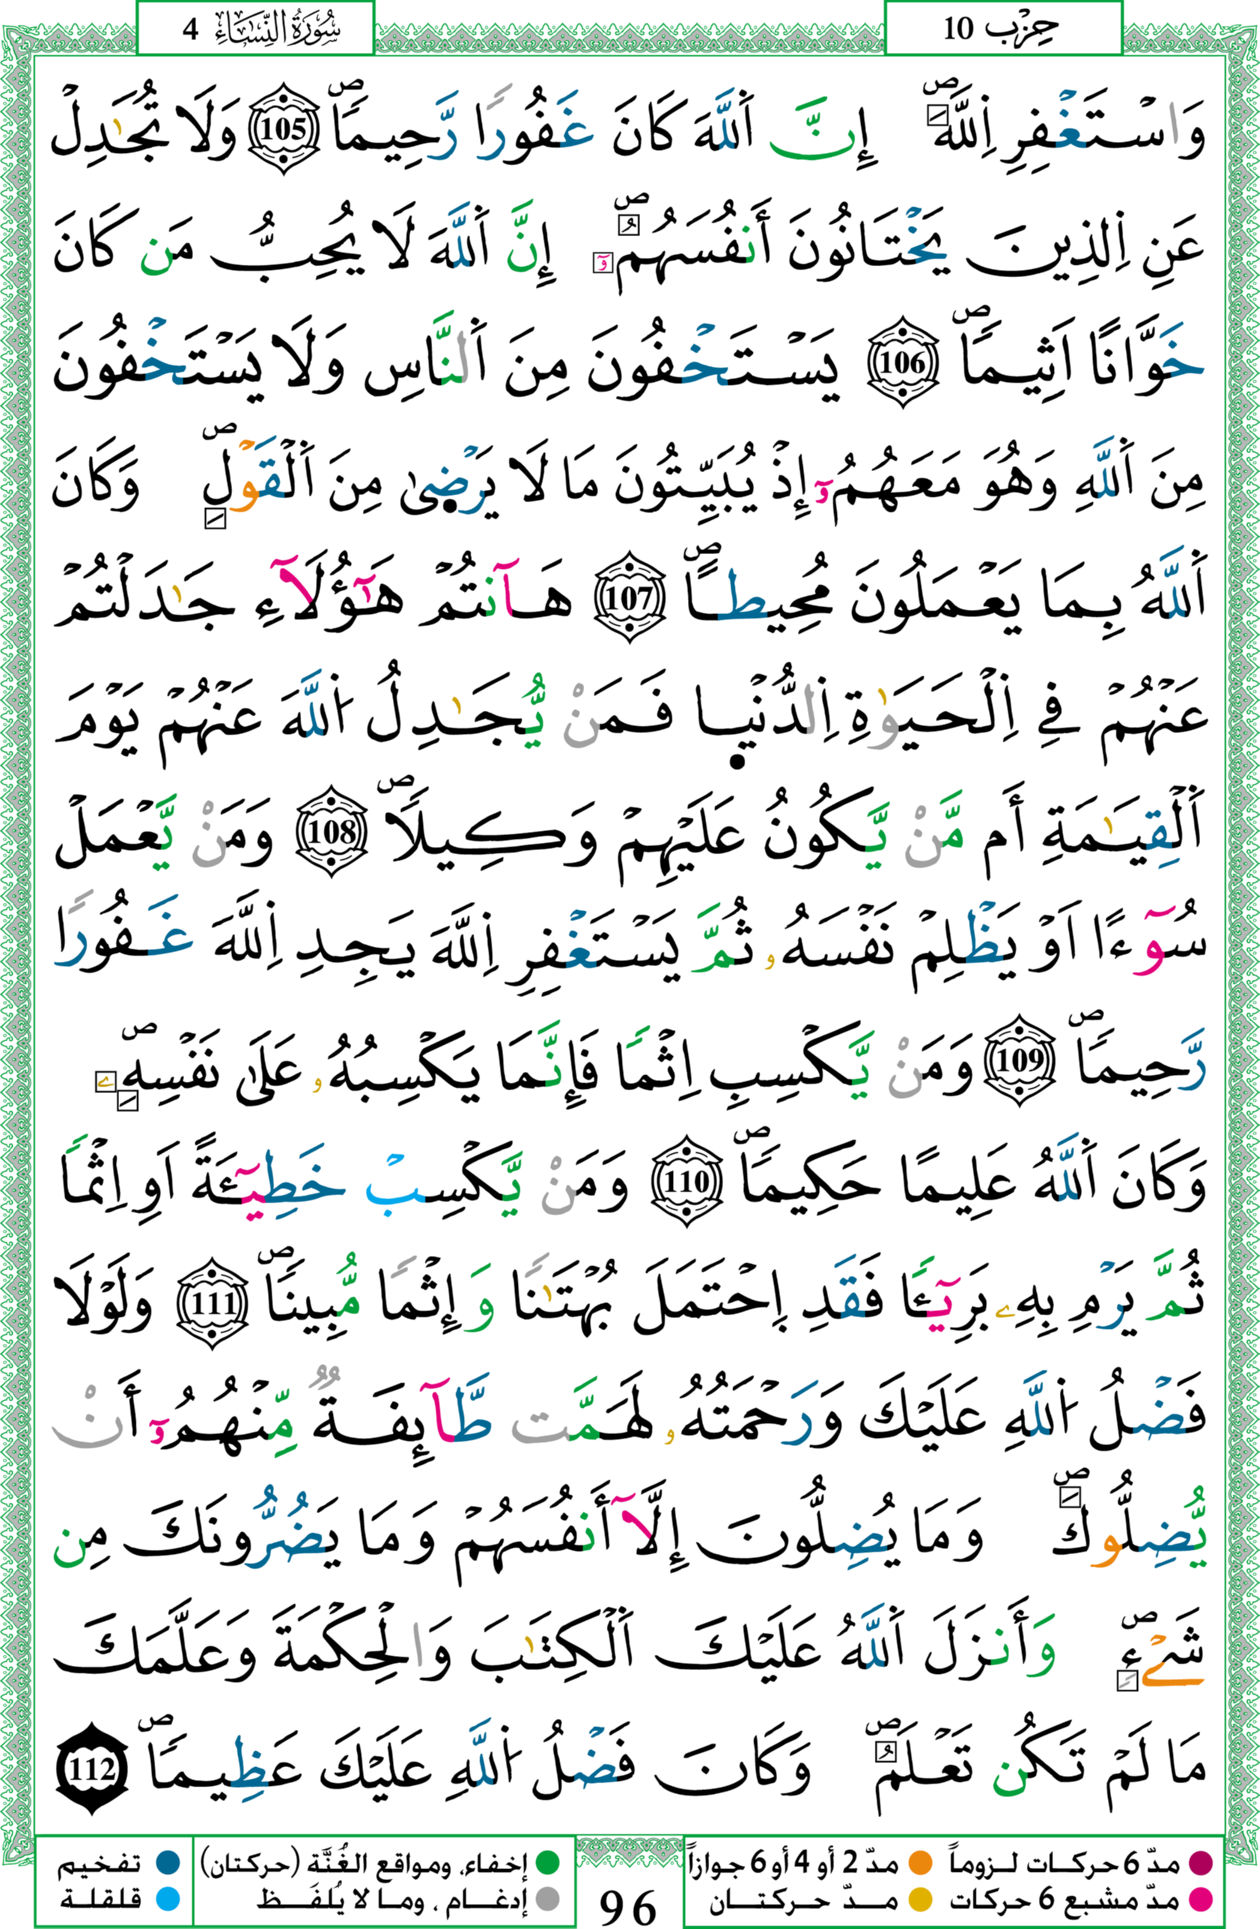 حِزْب 10
سُورَةُ النِّسَاءِ 4
وَاسْتَغْفِرِ اِللَّهَ إِنَّ اَللَّهَ كَانَ غَفُورًا رَّحِيمًا 105 وَلَا تُجَٰدِلْ
عَنِ اِلذِينَ يَخْتَانُونَ أَنفُسَهُمُۥٓ إِنَّ اَللَّهَ لَا يُحِبُّ مَن كَانَ
خَوَّانًا اَثِيمًا 106 يَسْتَخْفُونَ مِنَ اَلنَّاسِ وَلَا يَسْتَخْفُونَ
مِنَ اَللَّهِ وَهُوَ مَعَهُمُۥٓ إِذْ يُبَيِّتُونَ مَا لَا يَرْضِىٰ مِنَ اَلْقَوْلِ وَكَانَ
اَللَّهُ بِمَا يَعْمَلُونَ مُحِيطًا 107 هَآنتُمْ هَٰٓؤُلَآءِ جَٰدَلْتُمْ
عَنْهُمْ فِي اِلْحَيَوٰةِ اِلدُّنْيِا فَمَنْ يُّجَٰدِلُ اُللَّهَ عَنْهُمْ يَوْمَ
اَلْقِيَٰمَةِ أَم مَّنْ يَّكُونُ عَلَيْهِمْ وَكِيلًا 108 وَمَنْ يَّعْمَلْ
سُوٓءًا اَوْ يَظْلِمْ نَفْسَهُۥ ثُمَّ يَسْتَغْفِرِ اِللَّهَ يَجِدِ اِللَّهَ غَفُورًا
رَّحِيمًا 109 وَمَنْ يَّكْسِبِ اِثْمًا فَإِنَّمَا يَكْسِبُهُۥ عَلَىٰ نَفْسِهِۦ
وَكَانَ اَللَّهُ عَلِيمًا حَكِيمًا 110 وَمَنْ يَّكْسِبْ خَطِيٓـَٔةً اَوِ اِثْمًا
ثُمَّ يَرْمِ بِهِۦ بَرِيٓـًٔا فَقَدِ اِحْتَمَلَ بُهْتَٰنًا وَإِثْمًا مُّبِينًا 111 وَلَوْلَا
فَضْلُ اُللَّهِ عَلَيْكَ وَرَحْمَتُهُۥ لَهَمَّت طَّآئِفَةٌ مِّنْهُمُۥٓ أَنْ
يُّضِلُّوكَ وَمَا يُضِلُّونَ إِلَّآ أَنفُسَهُمْ وَمَا يَضُرُّونَكَ مِن
شَيْءٍ وَأَنزَلَ اَللَّهُ عَلَيْكَ اَلْكِتَٰبَ وَالْحِكْمَةَ وَعَلَّمَكَ
مَا لَمْ تَكُن تَعْلَمُ وَكَانَ فَضْلُ اُللَّهِ عَلَيْكَ عَظِيمًا 112
مدّ 6 حركات لـزوماً
مدّ 2 أو 4 أو 6 جوازاً
مدّ مشبع 6 حركات
مـدّ حـركتــان
96
إخفاء، ومواقع الغُنَّة (حركتان)
تفخيم
إدغـام ، ومـا لا يُلفَـظ
قلقلة